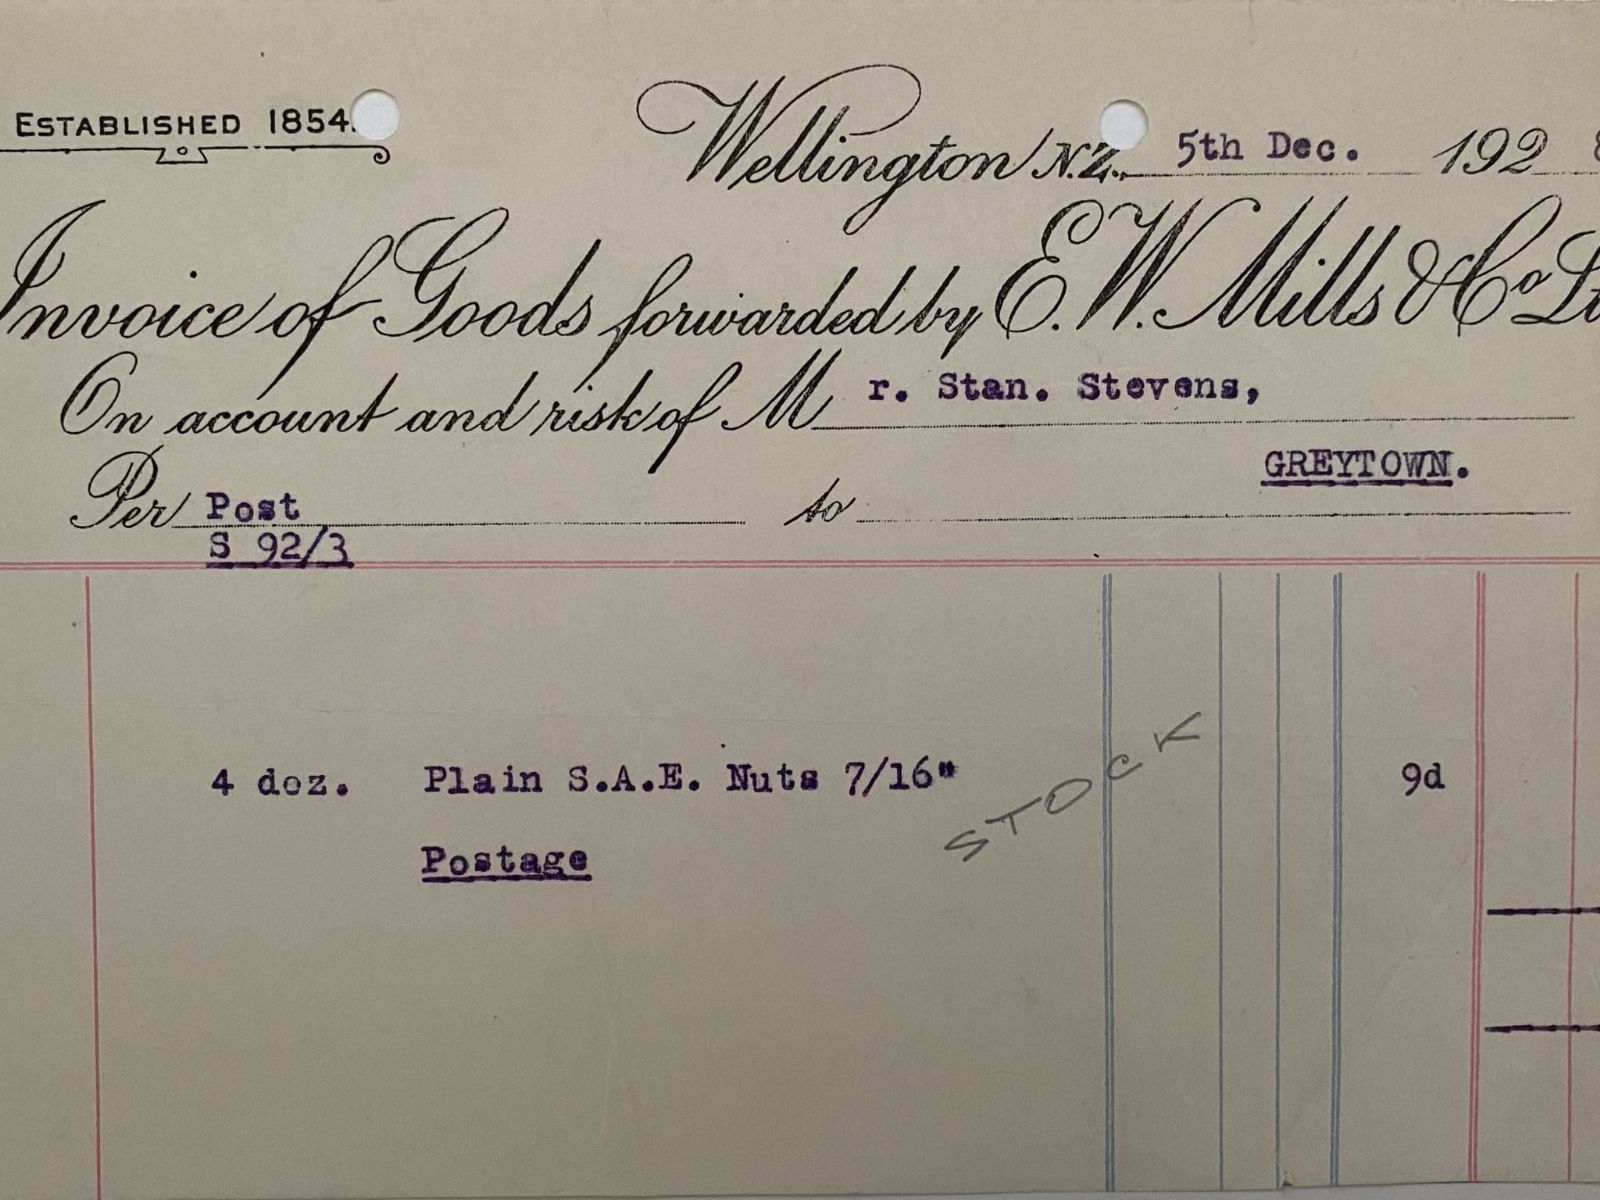 ESTABLISHED 1854.
Wellington N.Z. 5th Dec. 192
Invoice of Goods forwarded by E. W. Mills & Co
On account and risk of Mr. Stan. Stevens,
GREYTOWN.
Per Post to
S 92/3
4 doz. Plain S.A.E. Nuts 7/16" 9d
STOCK
Postage